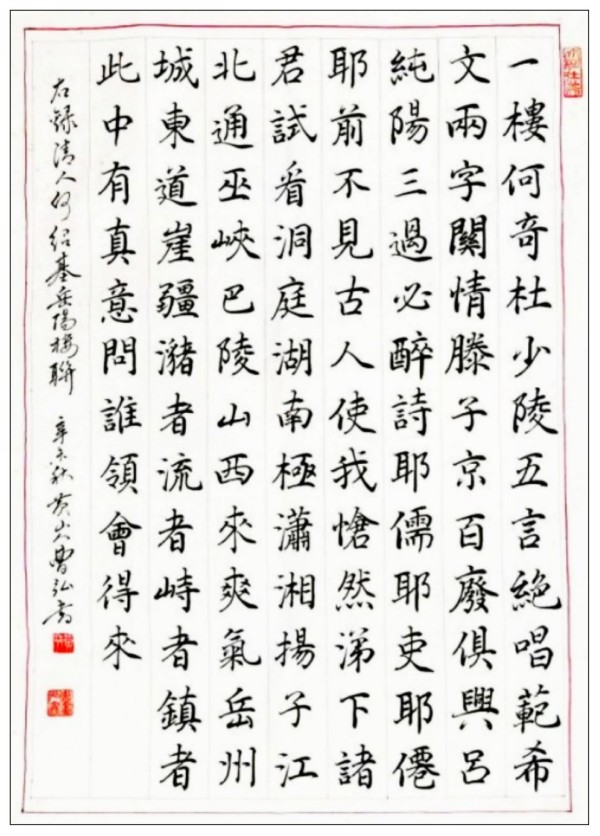 一樓何奇杜少陵五言絕唱範希
文兩字關情滕子京百廢俱興呂
純陽三過必醉詩耶儒耶吏耶僊
耶前不見古人使我愴然涕下諸
君試看洞庭湖南極瀟湘揚子江
北通巫峽巴陵山西來爽氣岳州
城東道崖疆瀦者流者峙者鎮者
此中有真意問誰領會得來
右錄清人何紹基岳陽樓聯 辛未秋黃山曹弘書